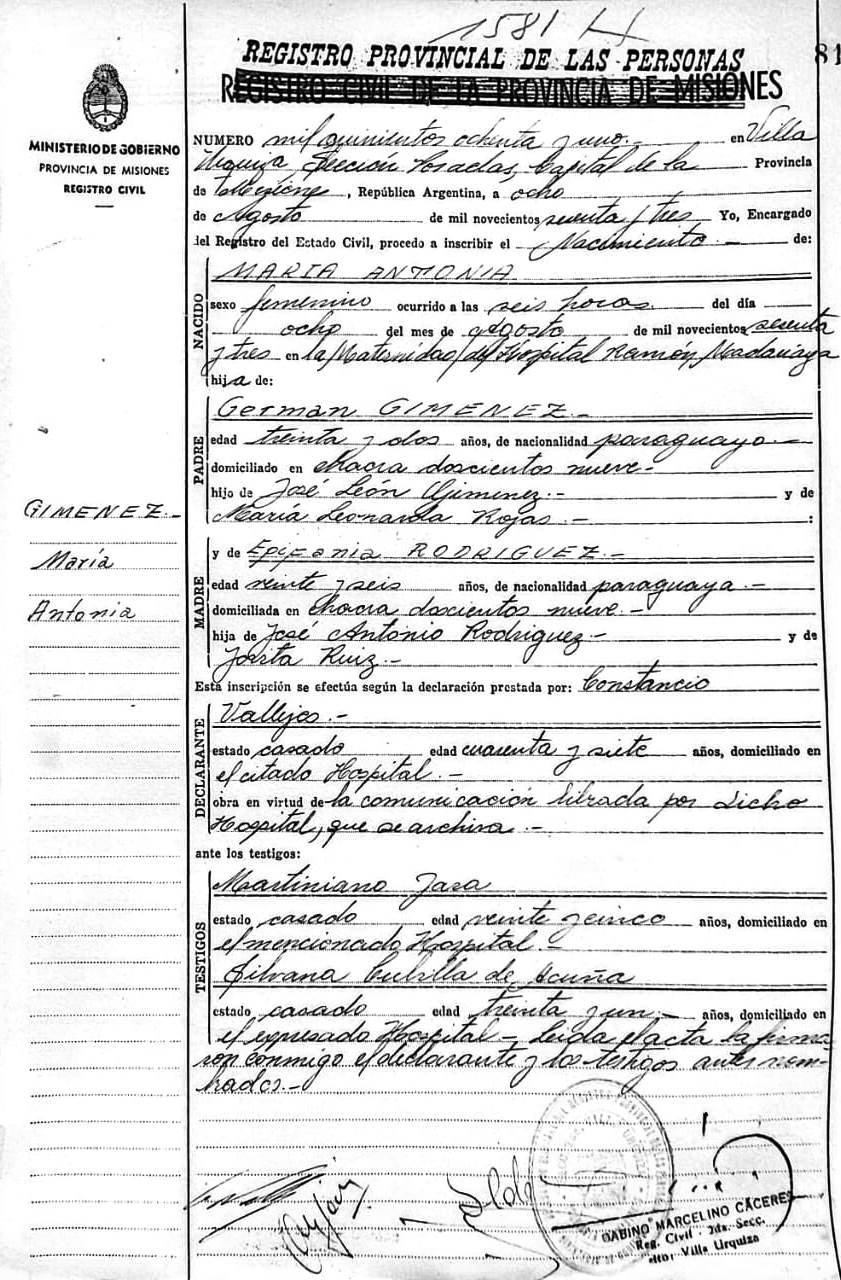 1581
81
REGISTRO PROVINCIAL DE LAS PERSONAS
REGISTRO CIVIL DE LA PROVINCIA DE MISIONES
MINISTERIO DE GOBIERNO
PROVINCIA DE MISIONES
REGISTRO CIVIL
NUMERO mil quinientos ochenta y uno.- en Villa
Urquiza, Sección Posadas, Capital de la Provincia
de Misiones, República Argentina, a ocho
de Agosto de mil novecientos sesenta y tres Yo, Encargado
del Registro del Estado Civil, procedo a inscribir el Nacimiento.- de:
NACIDO
MARIA ANTONIA
sexo femenino ocurrido a las seis horas. del día
ocho del mes de Agosto de mil novecientos sesenta
y tres en la Maternidad del Hospital Ramón Madariaga
hija de:
PADRE
German GIMENEZ.-
edad treinta y dos años, de nacionalidad paraguayo.-
domiciliado en chacra doscientos nueve-
hijo de José León Gimenez.- y de
María Leonarda Rojas.- :
GIMENEZ.-
María
Antonia
MADRE
y de Epifania RODRIGUEZ.-
edad veinte y seis años, de nacionalidad paraguaya.-
domiciliada en chacra doscientos nueve.-
hija de José Antonio Rodriguez- y de
Ruiz.-
Esta inscripción se efectúa según la declaración prestada por: Constancio
DECLARANTE
Vallejos.-
estado casado edad cuarenta y siete años, domiciliado en
el citado Hospital.-
obra en virtud de la comunicación librada por dicho
Hospital, que se archiva.-
ante los testigos:
TESTIGOS
Martiniano Jara
estado casado edad veinte y cinco años, domiciliado en
el mencionado Hospital.-
Silvana Cubilla de Acuña
estado casado edad treinta y un.- años, domiciliado en
el expresado Hospital- Leida el acta la firma
ron conmigo el declarante y los testigos antes nom-
brados.-
GABINO MARCELINO CACERES
Reg. Civil - 2da. Secc.
Villa Urquiza